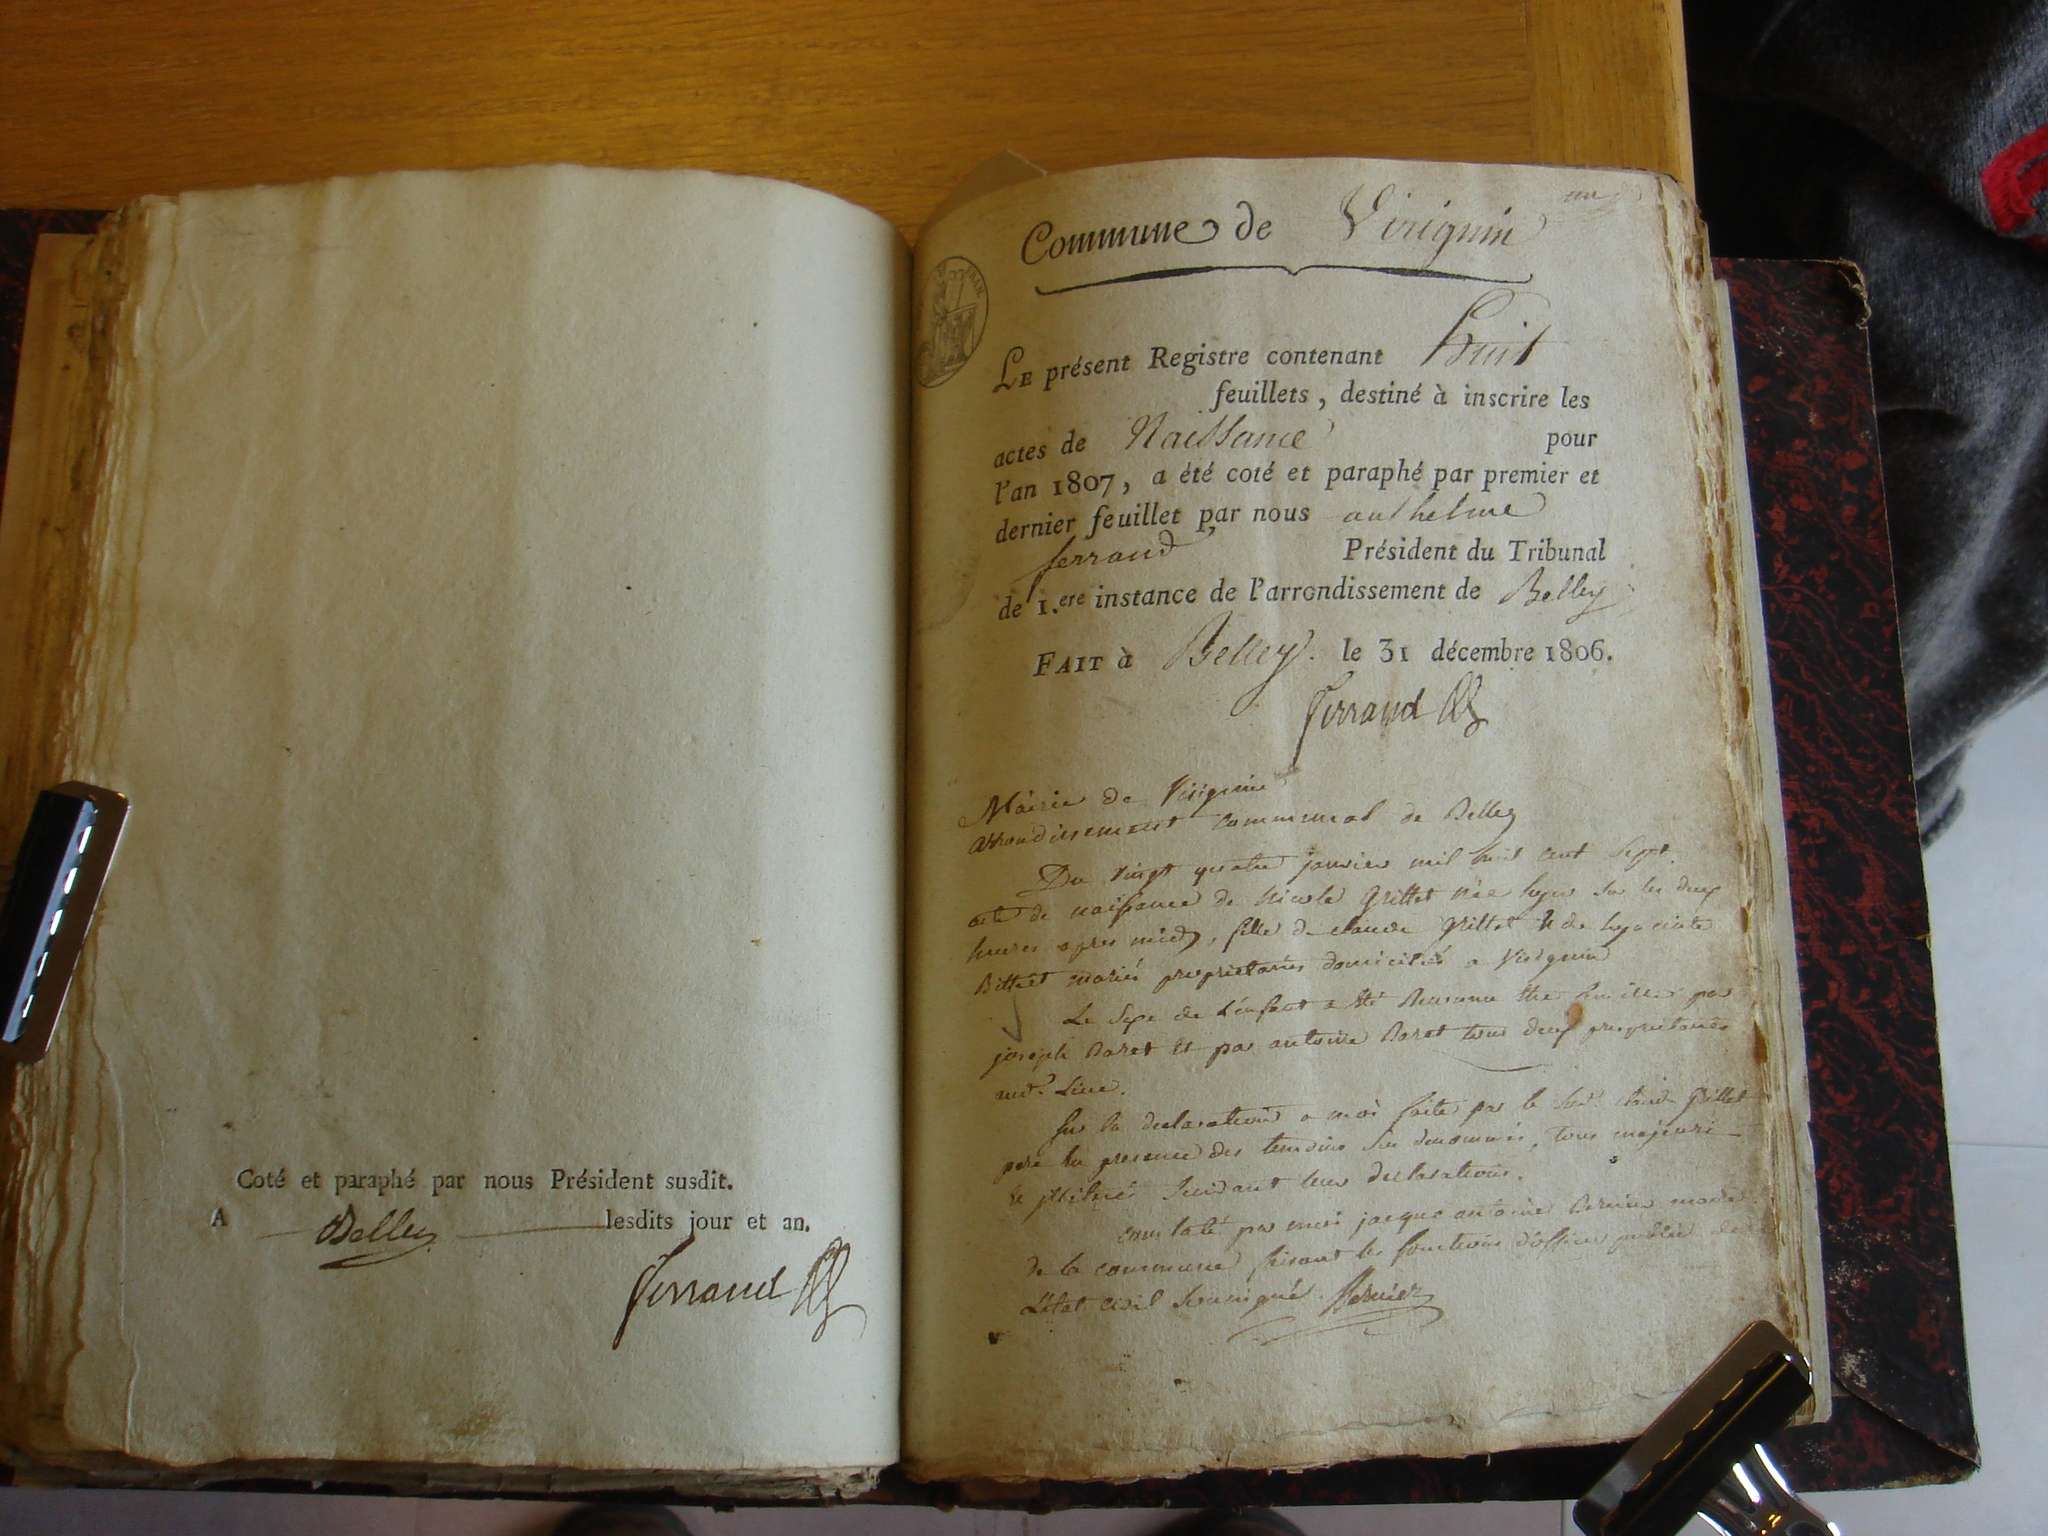 Coté et paraphé par nous Président susdit.
A Belley lesdits jour et an.
Ferrand
un
Commune de Virignin
LE présent Registre contenant huit
feuillets, destiné à inscrire les
actes de Naissance pour
l'an 1807, a été coté et paraphé par premier et
dernier feuillet par nous anthelme
ferrand Président du Tribunal
de 1.ere instance de l'arrondissement de Belley
FAIT à Belley. le 31 décembre 1806.
Ferrand
Mairie de Virignin
arrondissement communal de Belley
Du vingt quatre janvier mil huit cent sept.
acte de naissance de Nicole Grillet née hyer sur les deux
heures apres midy, fille de claude Grillet et de hyacinte
Billiet mariés proprietaires domiciliés a Virignin
Le Sexe de L'enfant a été Reconnu être femelle par
joseph Baret et par antoine Baret tous deux proprietaires
Sur la declaration a moi faite par le Claude Grillet
pere en presence des temoins Sus denommés, tous majeurs
Suivant leur declarations.
constaté par moi jacque antoine Bernier maire
de la commune faisant les fonctions d'officier public de
L'état civil Soussigné. Bernier